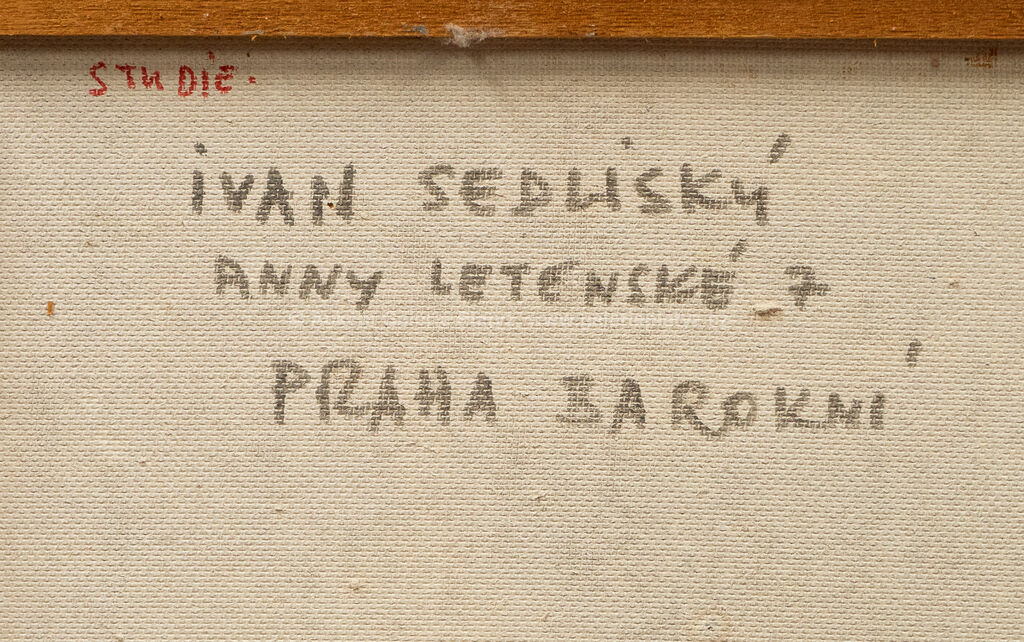 STUDIE.
IVAN SEDLISKÝ
ANNY LETENSKÉ 7
PRAHA BAROKNÍ